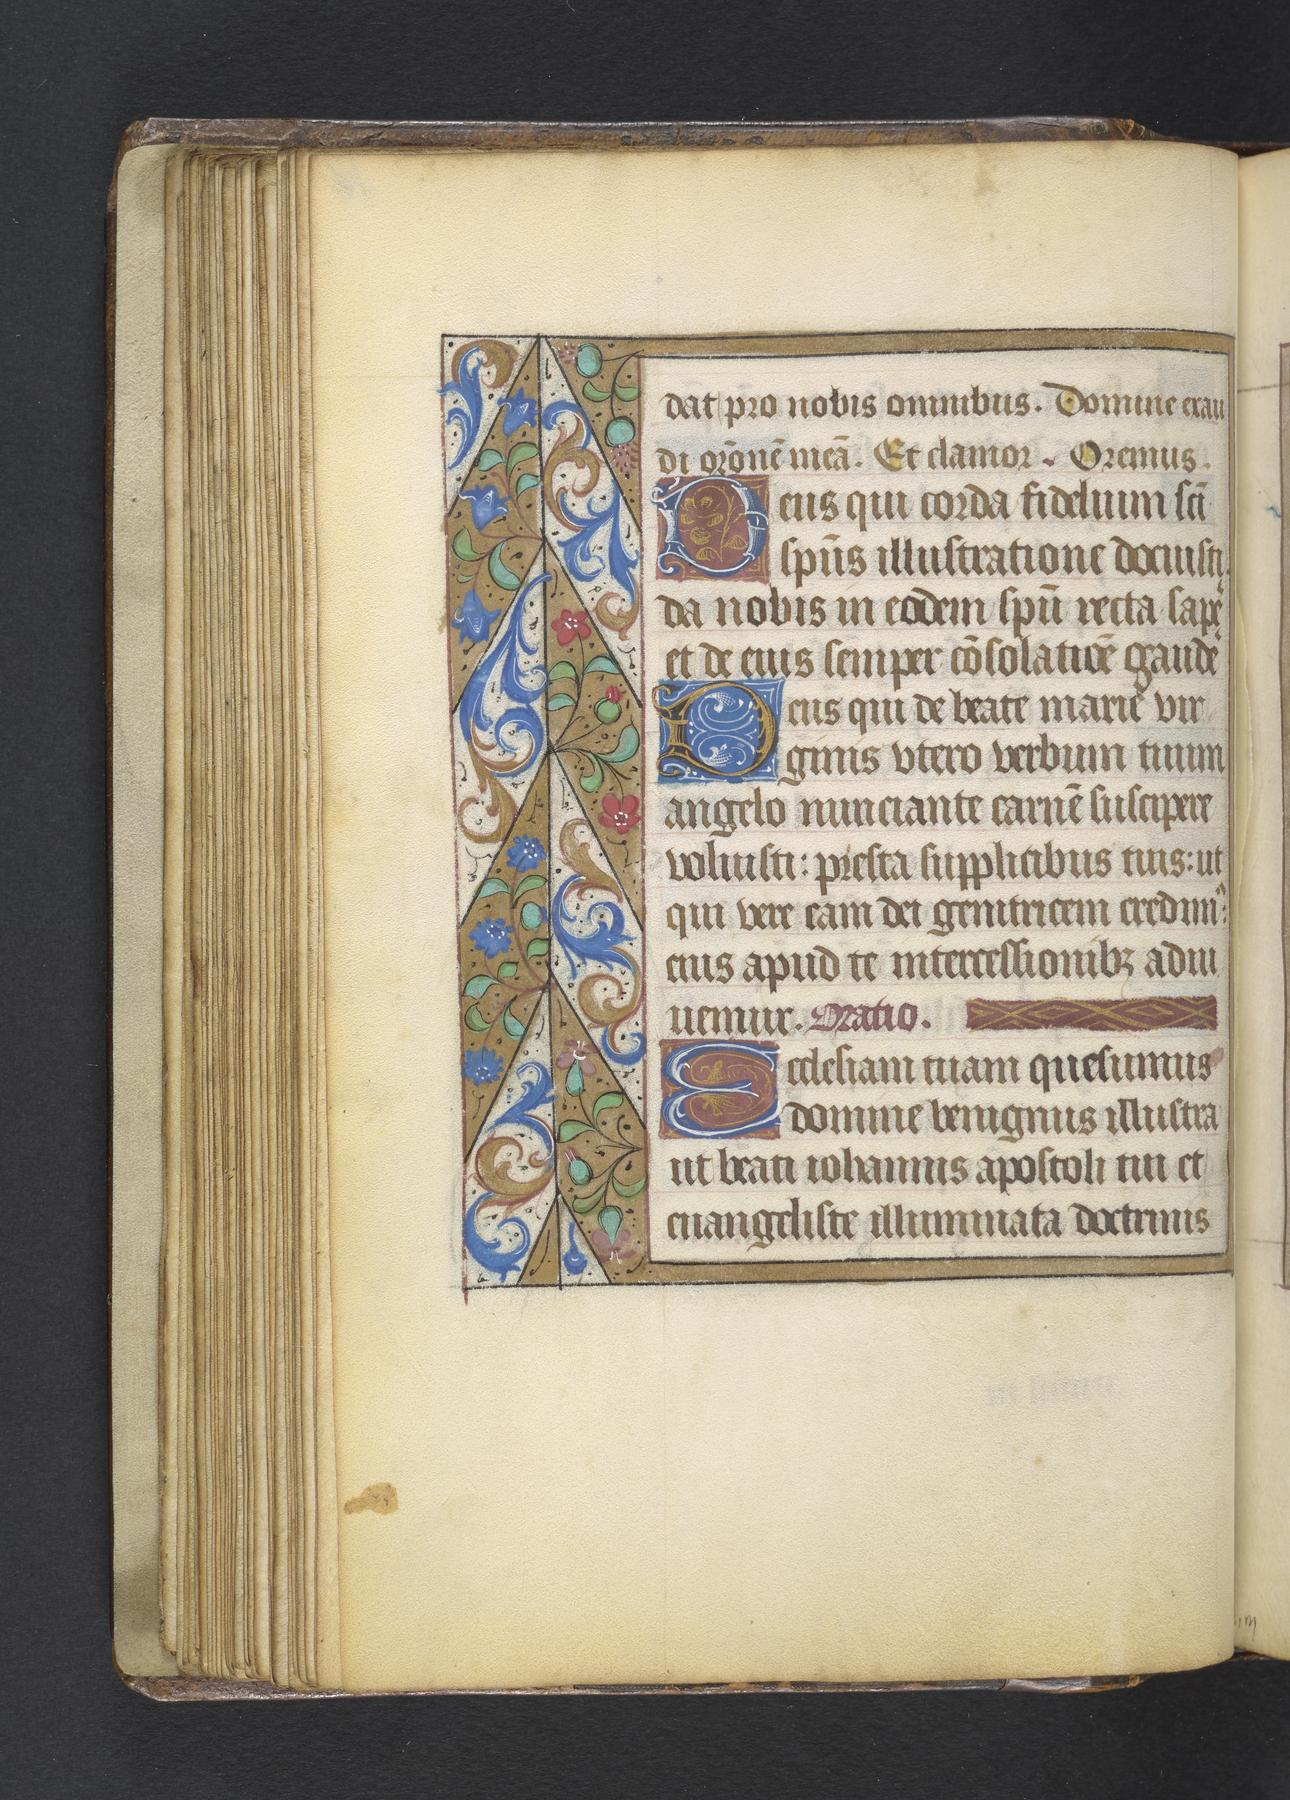 dat pro nobis omnibus. Domine exau
di orõnẽ meã. Et clamor. Oremus.
Deus qui corda fidelium sc̃i
sp̃us illustratione docuisti
da nobis in eodem sp̃u recta sapẽ
et de eius semper cõsolatiõe gaudẽ
Deus qui de beate marie vir
ginis vtero verbum tuum
angelo nunciante carnẽ suscipere
voluisti: presta supplicibus tuis: ut
qui vere eam dei genitricem credimꝰ:
eius apud te intercessionibꝫ adiu
uemur. Oratio.
Ecclesiam tuam quesumus
domine benignus illustra
ut beati iohannis apostoli tui et
euangeliste illuminata doctrinis